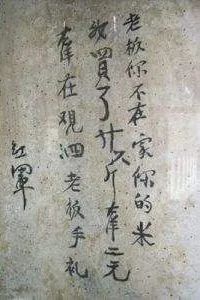 老板你不在家你的米
我買了廿六斤羍二元
羍在覌泗老板手礼
红軍